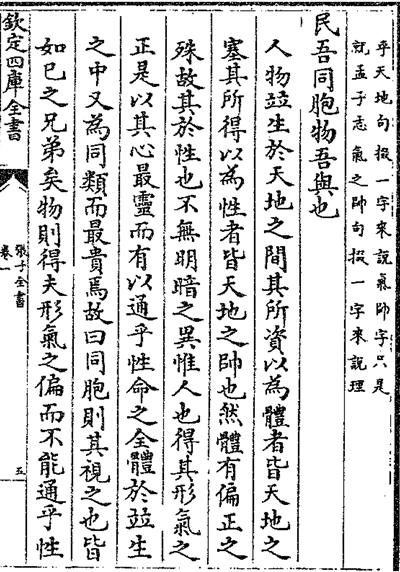 乎天地句掇一字來說氣帥字只是
就孟子志氣之帥句掇一字來說理
民吾同胞物吾與也
人物竝生於天地之間其所資以為體者皆天地之
塞其所得以為性者皆天地之帥也然體有偏正之
殊故其於性也不無明暗之異惟人也得其形氣之
正是以其心最靈而有以通乎性命之全體於竝生
之中又為同類而最貴焉故曰同胞則其視之也皆
如已之兄弟矣物則得夫形氣之偏而不能通乎性
欽定四庫全書
張子全書
卷一
五